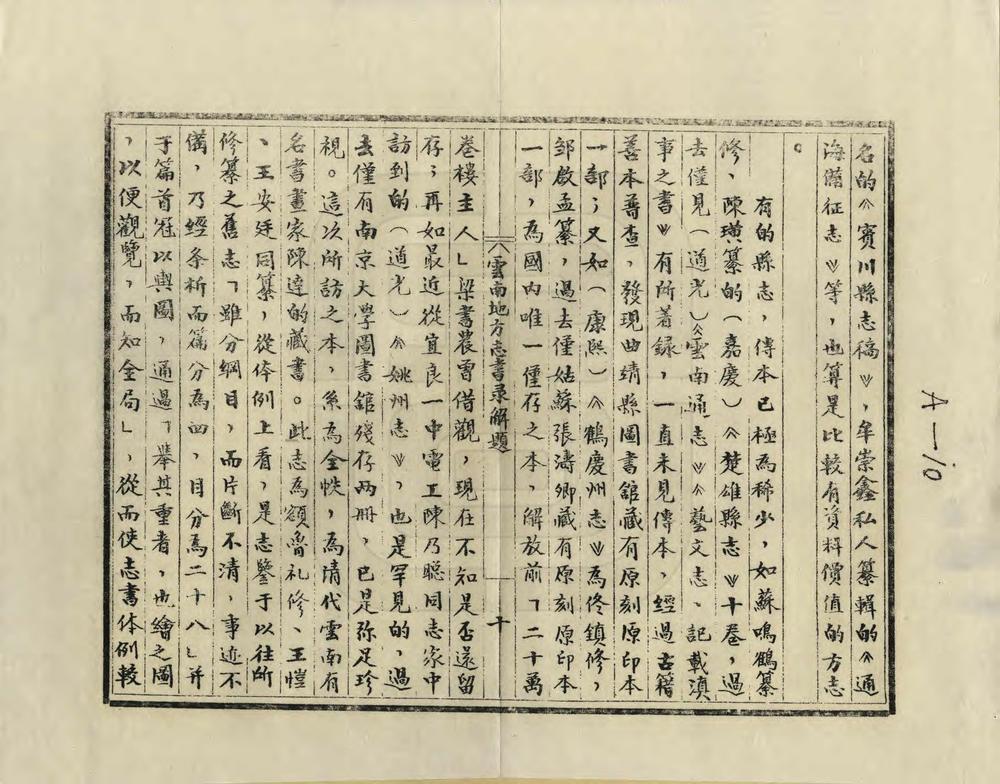 名的《賓川縣志稿》，牟崇鑫私人纂輯的《通
海備征志》等，也算是比較有資料價值的方志
。
有的縣志，傳本已極為稀少，如蘇鳴鶴纂
修、陳璜纂的（嘉慶）《楚雄縣志》十卷，過
去僅見（道光）《雲南通志》《藝文志、記載滇
事之書》有所著錄，一直未見傳本，經過古籍
善本普查，發現曲靖縣圖書館藏有原刻原印本
一部；又如（康熙）《鶴慶州志》為佟鎮修，
鄒啟孟纂，過去僅姑蘇張濤卿藏有原刻原印本
一部，為國内唯一僅存之本，解放前「二十萬
《雲南地方志書录解題
十
卷樓主人」梁書農曾借觀，現在不知是否還留
存；再如最近從宜良一中電工陳乃聪同志家中
訪到的（道光）《姚州志》，也是罕見的，過
去僅有南京大學圖書館殘存两冊，已是弥足珍
視。這次所訪之本，系為全帙，為清代雲南有
名書畫家陳逵的藏書。此志為額魯礼修、王愷
、王安廷同纂，從体例上看，是志鑒于以往所
修纂之舊志「雖分綱目，而片斷不清，事迹不
備，乃經条析而篇分為四，目分為二十八」并
于篇首冠以輿圖，通過「舉其重者，也繪之圖
，以便觀覽，而知全局」，從而使志書体例較
A—10